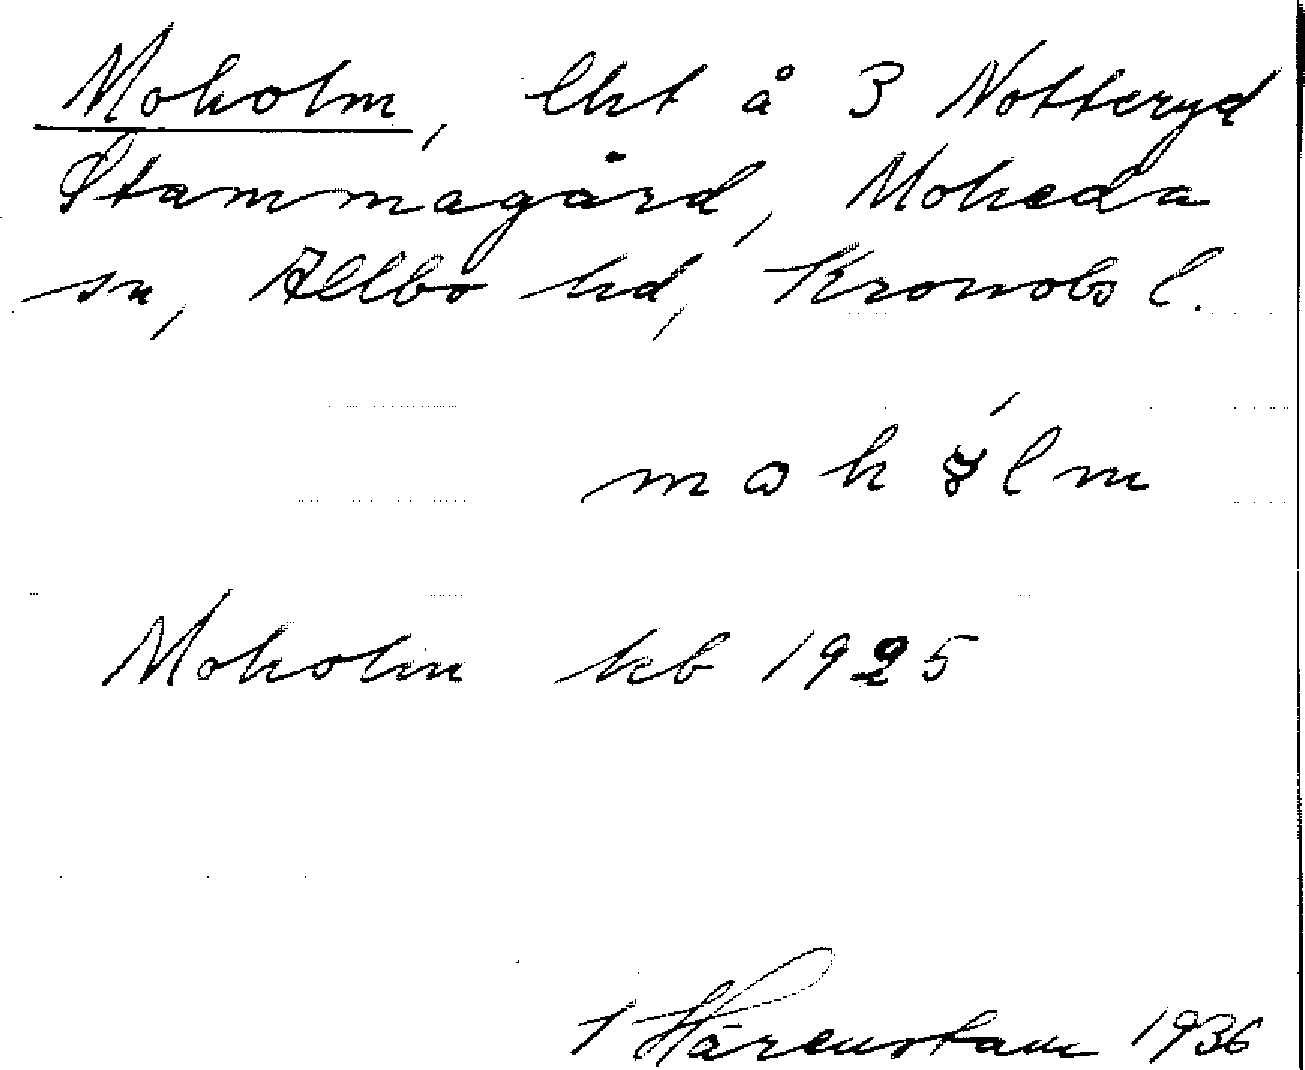 Moholm, lht å 3 Notteryd
Stammagård, Moheda
sn, Allbo hd, Kronobs l.
Moholm kb 1925
T Härenstam 1936